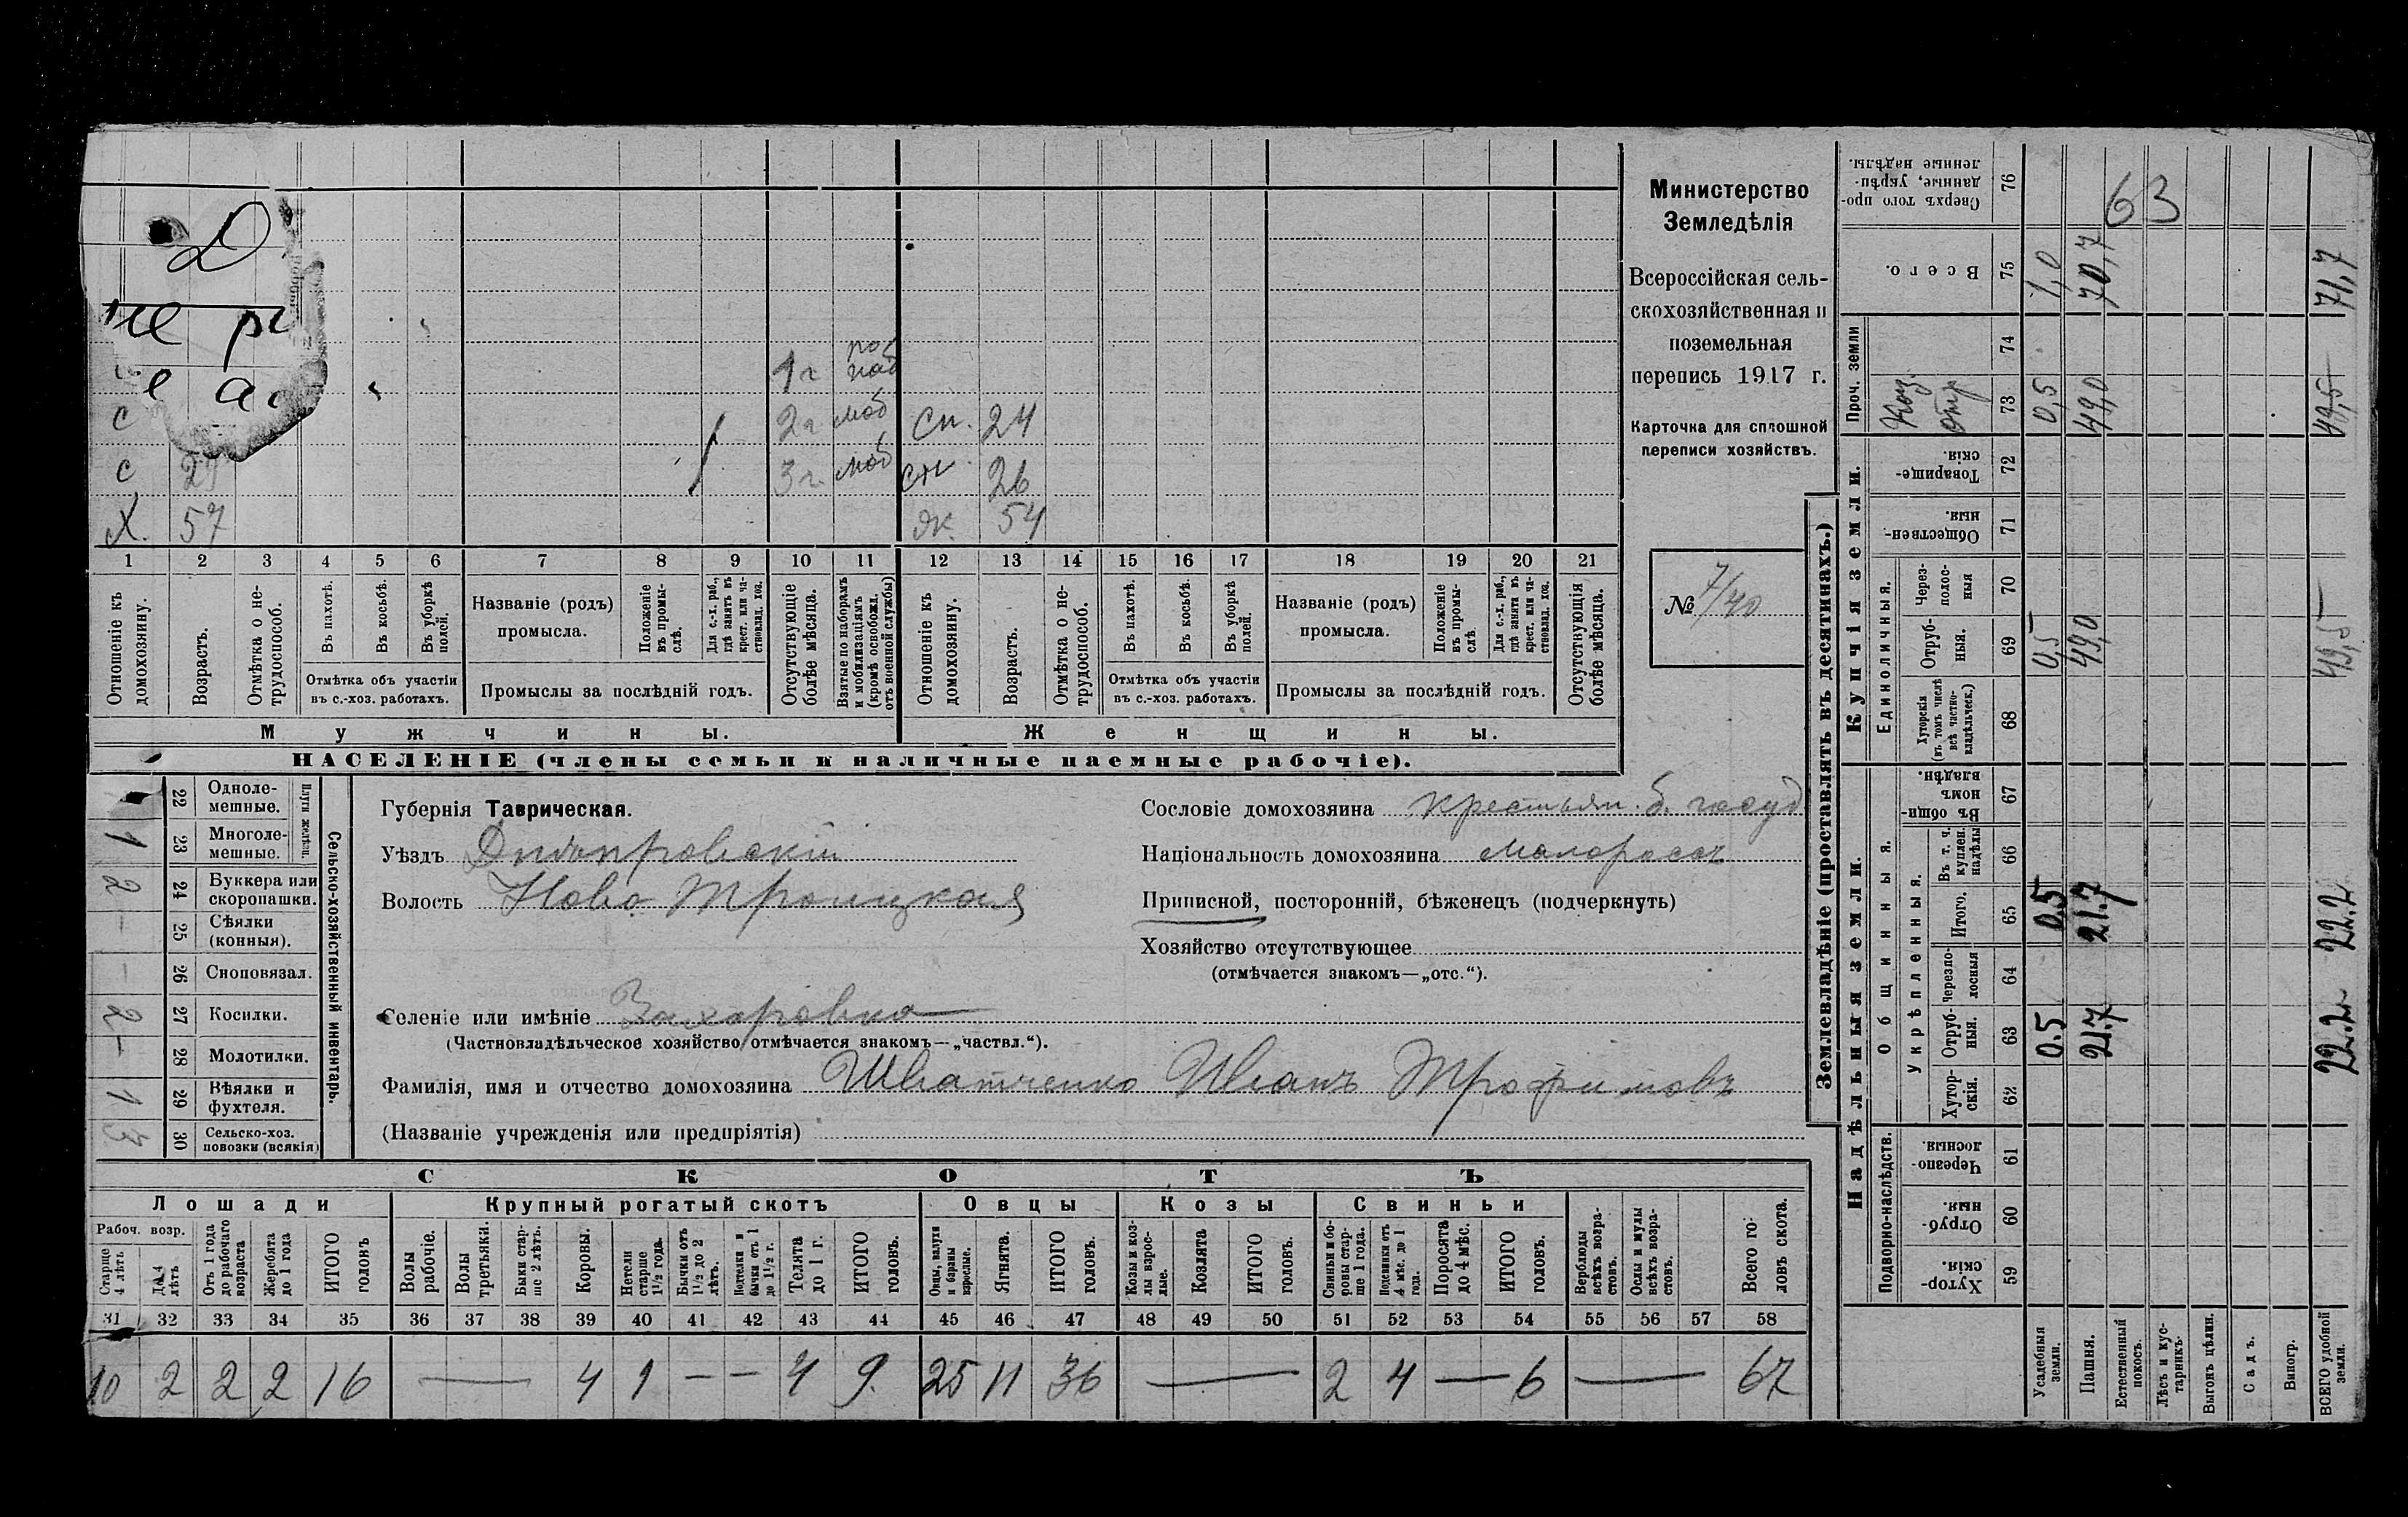 Министерство
Земледѣлія
Всероссійская сель-
скохозяйственная и
поземельная
перепись 1917 г.
Карточка для сплошной
переписи хозяйствъ.
№ 7/40
1 г
2 г моб сн. 24
3 г. моб 26
с
с 27
Х. 57 ж. 54
1 2 3 4 5 6 7 8 9 10 11 12 13 14 15 16 17 18 19 20 21
Отношеніе къ домохозяину.
Возрастъ.
Отмѣтка о не-трудоспособ.
Въ пахотѣ.
Въ косьбѣ.
Въ уборкѣ полей.
Отмѣтка объ участіи
въ с.-хоз. работахъ.
Названіе (родъ)
промысла.
Положеніе въ промы-слѣ.
Для с.-х. раб., гдѣ занятъ въ крест. или ча-стновлад. хоз.
Промыслы за послѣдній годъ.
Отсутствующіе болѣе мѣсяца.
Взятые по наборамъ и мобилизаціямъ (кромѣ освобожд. отъ военной службы)
Отношеніе къ домохозяину.
Возрастъ.
Отмѣтка о не-трудоспособ.
Въ пахотѣ.
Въ косьбѣ.
Въ уборкѣ полей.
Отмѣтка объ участіи
въ с.-хоз. работахъ.
Названіе (родъ)
промысла.
Положеніе въ промы-слѣ
Для с.-х. раб., гдѣ занята въ крест. или ча-стновлад. хоз.
Промыслы за послѣдній годъ.
Отсутствующія болѣе мѣсяца.
Мужчины. Женщины.
НАСЕЛЕНІЕ (члены семьи и наличные наемные рабочіе).
Сельско-хозяйственный инвентарь.
Плуги желѣзн.
22 Одноле-мешные.
1 23 Многоле-мешные.
2 24 Буккера или скоропашки.
– 25 Сѣялки (конныя).
– 26 Сноповязал.
2 27 Косилки.
– 28 Молотилки.
1 29 Вѣялки и фухтеля.
3 30 Сельско-хоз. повозки (всякія)
Губернія Таврическая.
Уѣздъ Днѣпровскій
Волость Ново Троицкая
Сословіе домохозяина крестьян. б. госуд
Національность домохозяина малороссъ
Приписной, посторонній, бѣженецъ (подчеркнуть)
Хозяйство отсутствующее
(отмѣчается знакомъ—„отс.“).
Селеніе или имѣніе Захаровка
(Частновладѣльческое хозяйство отмѣчается знакомъ—„частвл.“).
Фамилія, имя и отчество домохозяина Иванъ Трофимовъ
(Названіе учрежденія или предпріятія)
СКОТЪ
Лошади Крупный рогатый скотъ Овцы Козы Свиньи
Рабоч. возр.
Старше 4 лѣтъ
До 4 лѣтъ
Отъ 1 года до рабочаго возраста
Жеребята до 1 года
ИТОГО головъ
Волы рабочіе.
Волы третьяки.
Быки стар-ше 2 лѣтъ.
Коровы.
Нетели старше 1½ года.
Бычки отъ 1½ до 2 лѣтъ.
Подтелки и бычки отъ 1 до 1½ г.
Телята до 1 г.
ИТОГО головъ.
Овцы, валухи и бараны взрослые.
Ягнята.
ИТОГО головъ.
Козы и коз-лы взрос-лые.
Козлята
ИТОГО головъ.
Свиньи и бо-ровы стар-ше 1 года.
Подсвинки отъ 4 мѣс. до 1 года.
Поросята до 4 мѣс.
ИТОГО головъ.
Верблюды всѣхъ возра-стовъ.
Ослы и мулы всѣхъ возра-стовъ.
Всего го-ловъ скота.
31 32 33 34 35 36 37 38 39 40 41 42 43 44 45 46 47 48 49 50 51 52 53 54 55 56 57 58
10 2 2 2 16 — 4 1 – – 4 9. 25 11 36 — 2 4 — 6 — 67
Землевладѣніе (проставлять въ десятинахъ.)
Надѣльныя земли. Купчія земли. Проч. земли
Подворно-наслѣдств. Общинныя. Укрѣпленныя. Единоличныя.
Хутор-скія. 59
Отруб-ныя. 60
Черезпо-лосныя 61
Хутор-скія. 62
Отруб-ныя. 63 0.5 21.7 22.2
Черезпо-лосныя 64
Итого. 65 0.5 21.7 22.2
Въ т. ч. куплен. надѣлы 66
Въ общи-номъ владѣн. 67
Хуторскія (въ томъ числѣ всѣ частно-владѣльческ.) 68
Отруб-ныя. 69 0,5 49,0 49,5
Через-полос-ныя 70
Обществен-ныя. 71
Товарище-скія. 72
отр 73 0,5 49,0 49,5
74
Всего. 75 1,0 70,7 71,7
Сверхъ того про-данные, укрѣп-ленные надѣлы. 76 63
Усадебныя земли.
Пашня.
Естественный покосъ.
Лѣсъ и кус-тарникъ.
Выгонъ цѣлин.
Садъ.
Виногр.
ВСЕГО удобной земли.